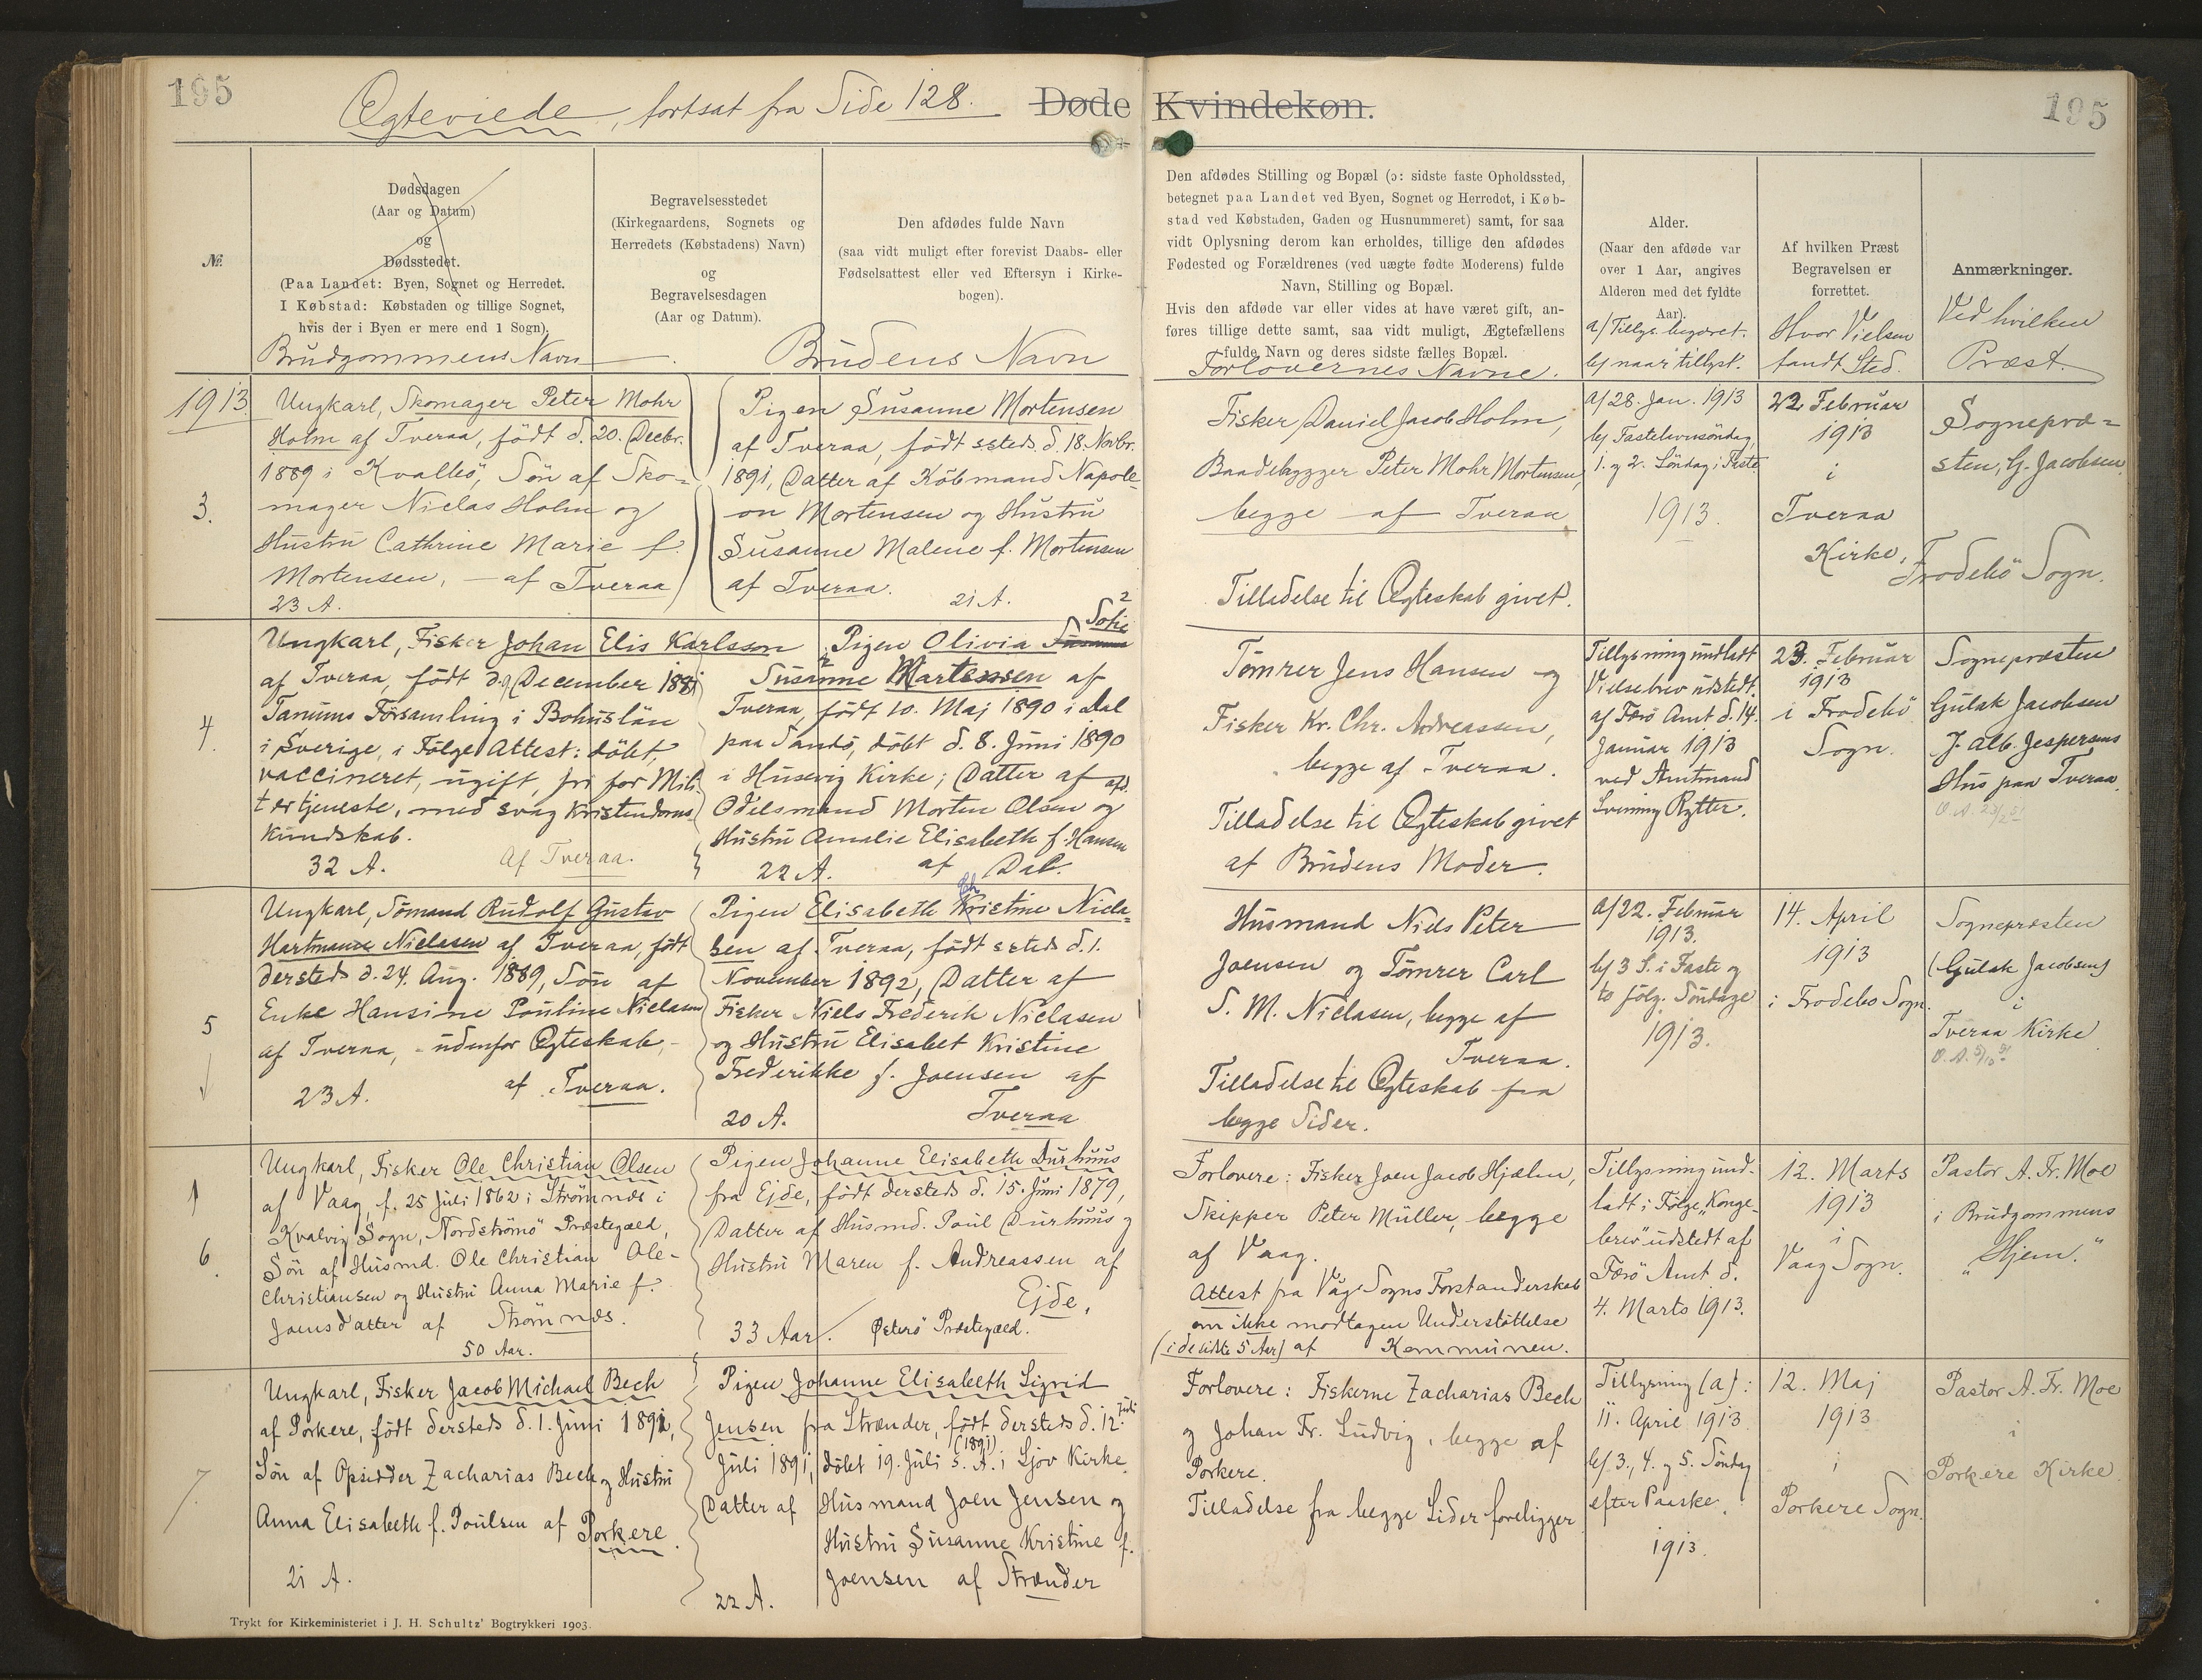 195
Ægteviede, fortsat fra Side 128.
Døde Kvindekøn.
195
№
Dødsdagen
(Aar og Datum)
og
Dødsstedet.
(Paa Landet: Byen, Sognet og Herredet.
I Købstad: Købstaden og tillige Sognet,
hvis der i Byen er mere end 1 Sogn).
Brudgommens Navn
Begravelsesstedet
(Kirkegaardens, Sognets og
Herredets (Købstadens) Navn)
og
Begravelsesdagen
(Aar og Datum).
Den afdødes fulde Navn
(saa vidt muligt efter forevist Daabs- eller
Fødselsattest eller ved Eftersyn i Kirke-
bogen).
Brudens Navn
Den afdødes Stilling og Bopæl (ɔ: sidste faste Opholdssted,
betegnet paa Landet ved Byen, Sognet og Herredet, i Køb-
stad ved Købstaden, Gaden og Husnummeret) samt, for saa
vidt Oplysning derom kan erholdes, tillige den afdødes
Fødested og Forældrenes (ved uægte fødte Moderens) fulde
Navn, Stilling og Bopæl.
Hvis den afdøde var eller vides at have været gift, an-
føres tillige dette samt, saa vidt muligt, Ægtefællens
fulde Navn og deres sidste fælles Bopæl.
Forlovernes Navne.
Alder.
(Naar den afdøde var
over 1 Aar, angives
Alderen med det fyldte
Aar).
a) Tillys. begæret.
b) naar tillyst.
Af hvilken Præst
Begravelsen er
forrettet.
Hvor Vielsen
fandt Sted.
Anmærkninger.
Ved hvilken
Præst.
1913
3.
Ungkarl, Skomager Peter Mohr
Holm af Tveraa, født d. 20. Decbr.
1889 i Kvalbö, Søn af Sko-
mager Niclas Holm og
Hustru Cathrine Marie f.
Mortensen, - af Tveraa
23 A.
Pigen Susanne Mortensen
af Tveraa, født ssteds d. 18. Novbr.
1891, Datter af Köbmand Napole-
on Mortensen og Hustru
Susanne Malene f. Mortensen
af Tveraa.
21 A.
Fisker Daniel Jacob Holm,
Baadebygger Peter Mohr Mortensen,
begge af Tveraa
Tilladelse til Ægteskab givet.
a) 28. Jan. 1913
b) Fastelavnsöndag,
1. og 2. Söndag i Faste
1913.
22 Februar
1913
i
Tveraa
Kirke,
Sognepræ=
sten, G. Jacobsen
Frodebö Sogn.
4.
Ungkarl, Fisker Johan Elis Karlsson
af Tveraa, født d. 9 December 1881
Tanums Församling i Bohuslän
i Sverige, i Følge Attest: döbt,
vaccineret, ugift, fri for Mili-
tærtjeneste, med svag Kristendoms-
kundskab.
32 A.
Af Tveraa.
2
Sofie
Pigen Olivia Susanne
Susanne Martensen af
Tveraa, født 10. Maj 1890 i Dal
paa Sandö, döbt d. 8. Juni 1890
i Husevig Kirke; Datter af afd.
Odelsmand Morten Olsen og
Hustru Amalie Elisabeth f. Hansen
22 A. af Dal.
Tömrer Jens Hansen og
Fisker Kr. Chr. Andreassen,
begge af Tveraa.
Tilladelse til Ægteskab givet
af Brudens Moder.
Tillysning undladt
Vielsebrev udstedt.
af Færö Amt d. 14.
Januar 1913
ved Amtmand
Svenning Rytter.
23. Februar
1913
i Frodebö
Sogn.
Sognepræsten
Gulak Jacobsen
J. Alb. Jespersens
Hus paa Tveraa.
5
Ungkarl, Sömand Rudolf Gustav
Hartmann Niclasen af Tveraa, født
dersteds d. 24. Aug. 1889, Søn af
Enke Hansine Pouline Niclasen
af Tveraa, - udenfor Ægteskab, -
23 A. af Tveraa.
Ch
Pigen Elisabeth Kristine Nicla-
sen af Tveraa, født ssteds d. 1.
November 1892, Datter af
Fisker Niels Frederik Niclasen
og Hustru Elisabet Kristine
Frederikke f. Joensen af
20 A. Tveraa
Husmand Niels Peter
Joensen og Tömrer Carl
S. M. Niclasen, begge af
Tveraa.
Tilladelse til Ægteskab fra
begge Sider.
a) 22. Februar
1913.
b) 3 S. i Faste og
to følg. Söndage
1913.
14. April
1913
i Frodebo Sogn.
Sognepræsten
(Gulak Jacobsen)
i
Tveraa Kirke
6.
Ungkarl, Fisker Ole Christian Olsen
af Vaag, f. 25 Juli 1862 i Strömnæs i
Kvalvig Sogn, Nordströmö Præstegæld,
Søn af Husmd. Ole Christian Ole-
Christiansen og Hustru Anna Marie f.
Joensdatter af Strömnæs.
50 Aar.
Pigen Johanne Elisabeth Durhuus
fra Ejde, født dersteds d. 15. Juni 1879,
Datter af Husmd. Poul Durhuus og
Hustru Maren f. Andreassen af
Ejde,
33 Aar. Österö Præstegæld.
Forlovere: Fisker Joen Jacob Hjælm,
Skipper Peter Müller, begge
af Vaag.
Attest fra Våg Sogns Forstanderskab
om ikke modtagen Understöttelse
(i de sidste 5 Aar) af Kommunen.
Tillysning und-
ladt i Følge "Konge-
brev" udstedt af
Færö Amt d.
4. Marts 1913.
12. Marts
1913
i
Vaag Sogn.
Pastor A. Fr. Moe
i Brudgommens
"Hjem."
7.
Ungkarl, Fisker Jacob Michael Bech
af Porkere, født dersteds d. 1. Juni 1892,
Søn af Opsidder Zacharias Bech og Hustru
Anna Elisabeth f. Poulsen af Porkere.
21 A.
Pigen Johanne Elisabeth Sigrid
Jensen fra Strænder, født dersteds d. 12. Juli
(1891)
Juli 1891, döbt 19. Juli s. A. i Sjov Kirke,
Datter af Husmand Joen Jensen og
Hustru Susanne Kristine f.
Joensen af Strænder
22 A.
Forlovere: Fiskerne Zacharias Bech
og Johan Fr. Ludvig, begge af
Porkere.
Tilladelse fra begge Sider foreligger
Tillysning (a):
11. April 1913
b) 3., 4. og 5. Söndag
efter Paaske.
1913.
12. Maj
1913
i
Porkere Sogn.
Pastor A. Fr. Moe
i
Porkere Kirke
Trykt for Kirkeministeriet i J. H. Schultz' Bogtrykkeri 1903.